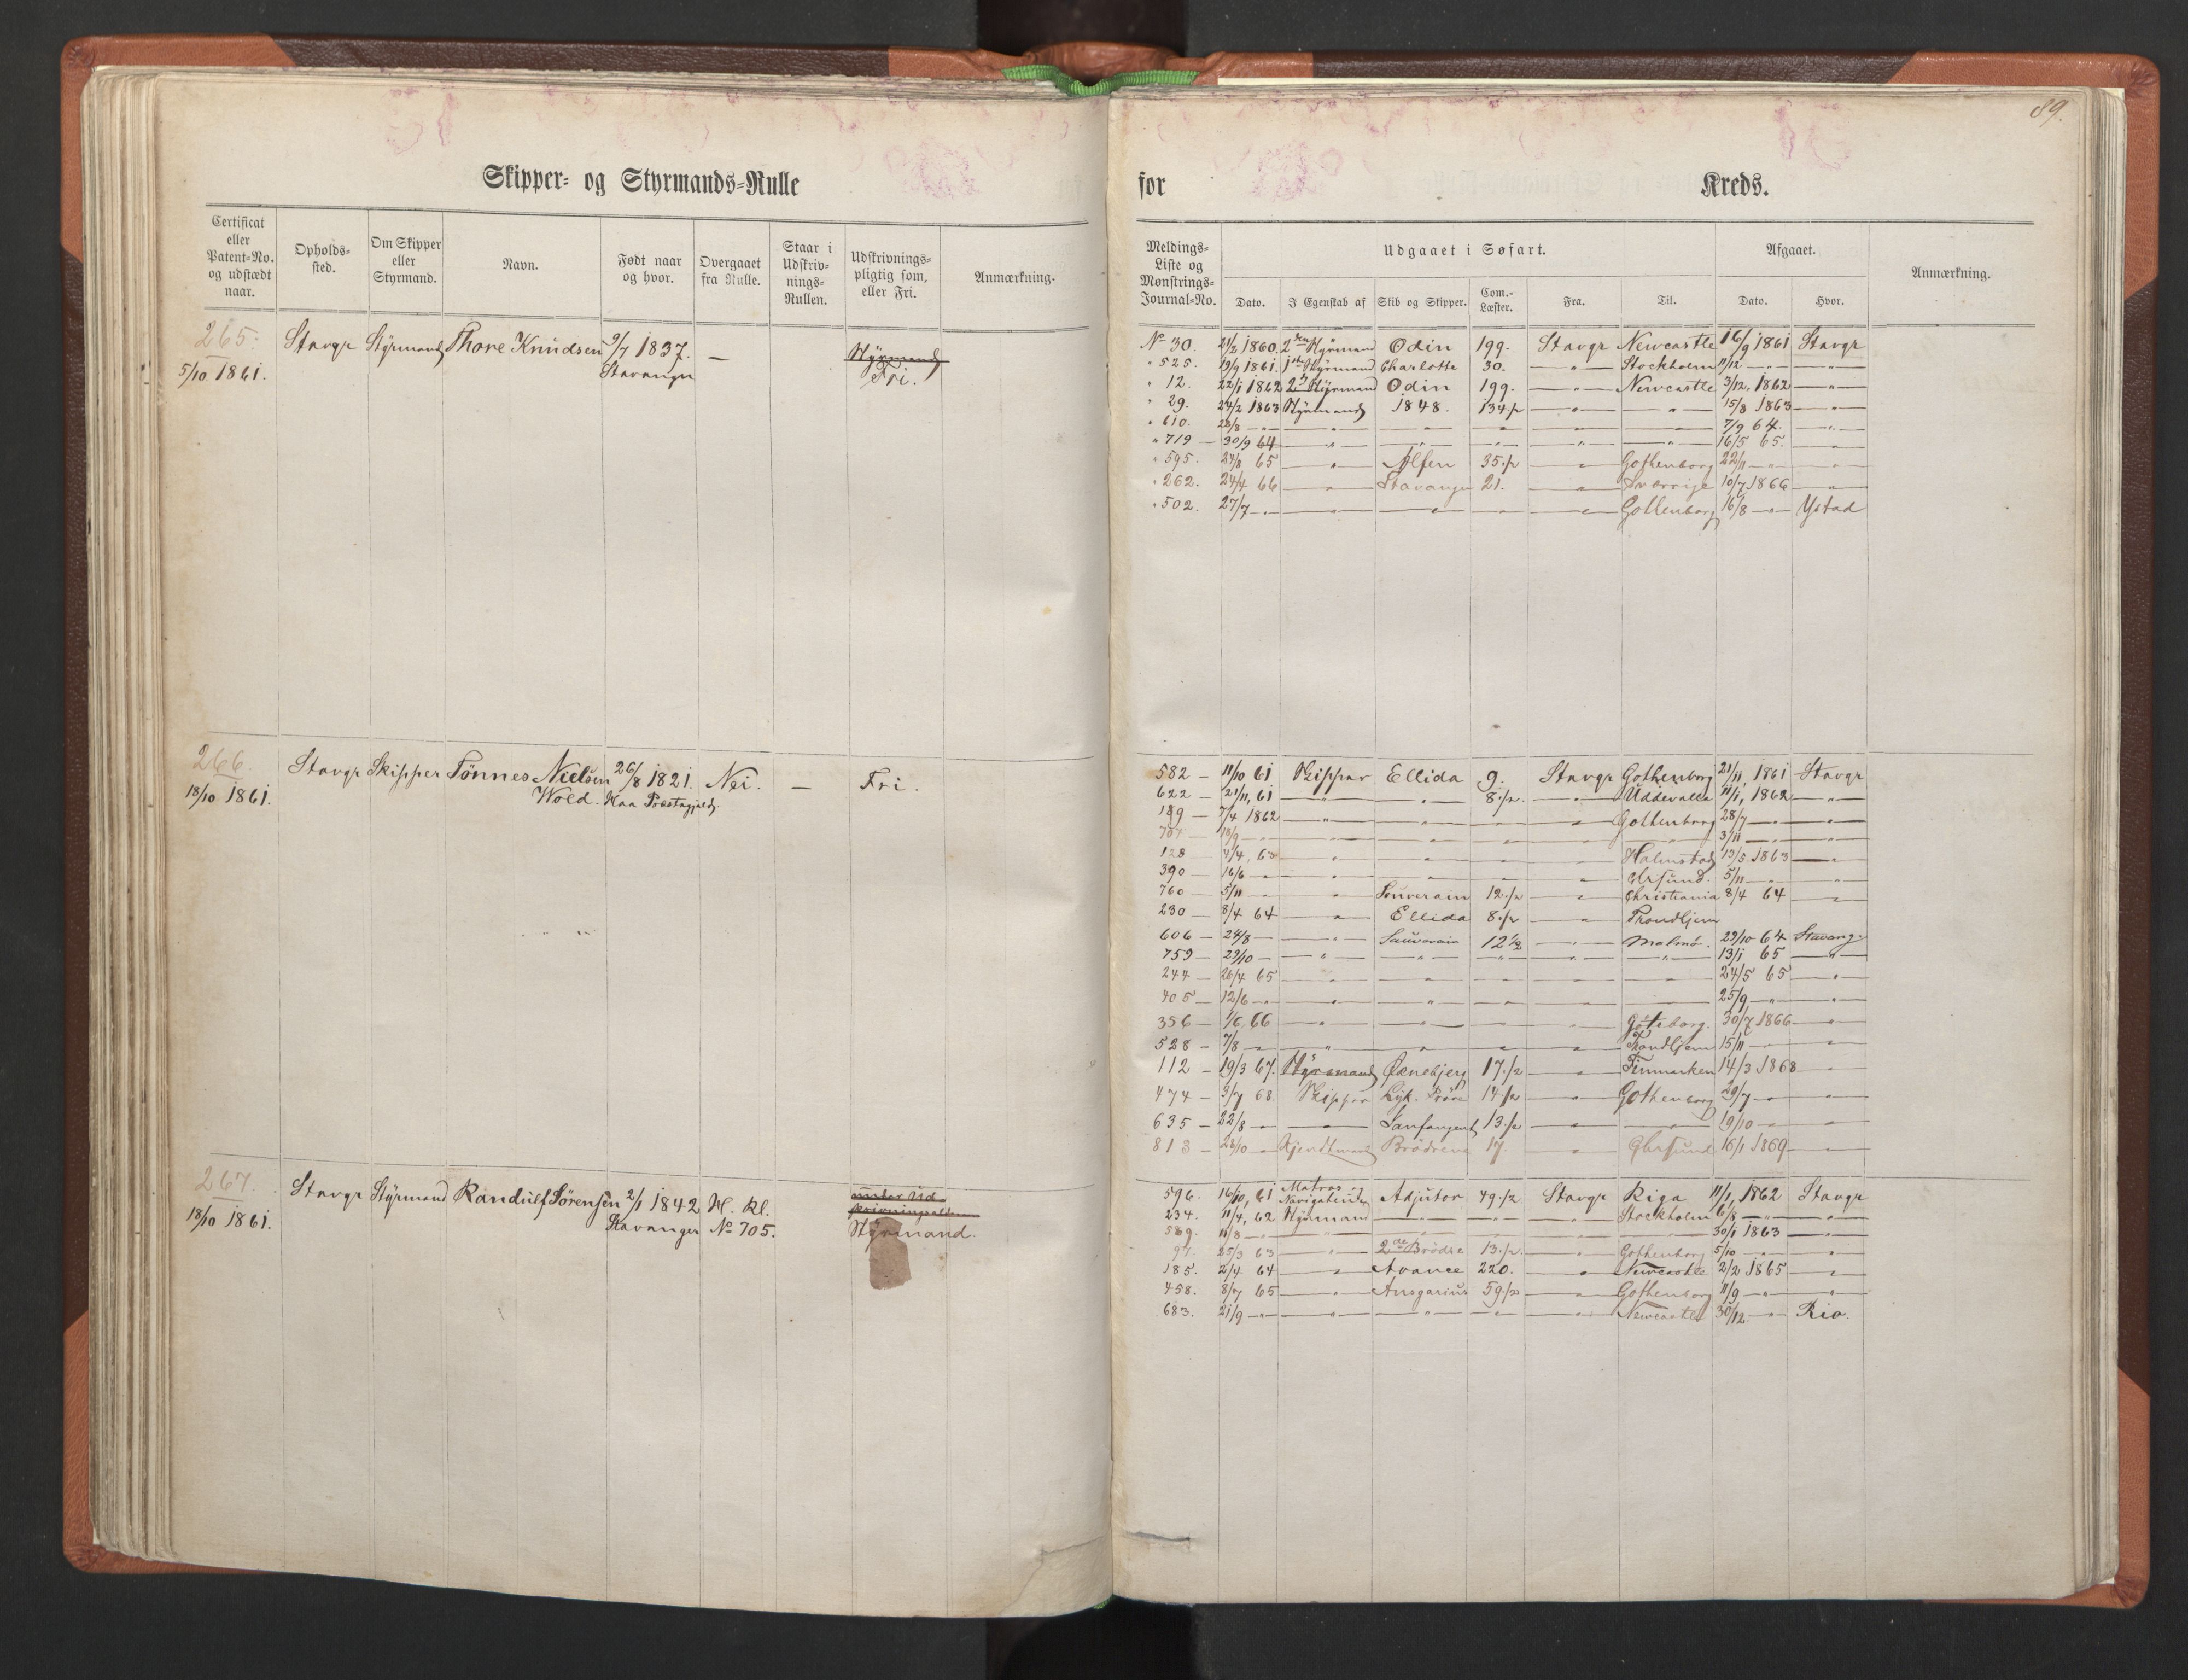 89.
Skipper- og Styrmands-Rulle
for Kreds.
Certificat eller Patent-No. og udstædt naar.
Opholds-sted.
Om Skipper eller Styrmand.
Navn.
Født naar og hvor.
Overgaaet fra Rulle.
Staar i Udskriv-nings-Rullen.
Udskrivnings-pligtig som, eller Fri.
Anmærkning.
Meldings-Liste og Mønstrings-Journal-No.
Udgaaet i Søfart.
Dato. I Egenskab af Skib og Skipper. Com.-Læster. Fra. Til.
Afgaaet.
Dato. Hvor.
Anmærkning.
265. Stavgr Styrmand Thore Knudsen 9/7 1837. —
5/10 1861. Stavanger
Styrmand
Fri.
No 30. 21/2 1860. 2den Styrmand Odin 199. Stavgr Newcastle 16/9 1861 Stavgr
" 525. 19/9 1861. 1st Styrmand Charlotte 30. — " — Stockholm 11/12 — " — — " —
" 12. 22/1 1862 2d Styrmand Odin 199. — " — Newcastle 3/12, 1862 — " —
" 29. 24/2 1863 Styrmand 1848. 134 1/2 — " — — " — 15/8 1863 — " —
" 610. 28/8 — " — — " — — " — — " — — " — — " — 7/9 64. — " —
" 719 — 30/9 64 — " — — " — — " — — " — — " — 16/5 65. — " —
" 595. 24/8 65 — " — Alfen 35 1/2 — " — Gothenborg 22/11 — " — — " —
" 262. 24/4 66 — " — Stavanger 21. — " — Sverrige 10/7 1866 — " —
" 502. 27/7 — " — — " — — " — — " — — " — Gothenborg 16/8 — " — Ystad
266. Stavgr Skipper Tønnes Nielsen 26/8 1821. Nei. — Fri.
18/10 1861. Wold. Haa Præstegjeld
582 — 11/10 61 Skipper Ellida 9. Stavgr Gothenborg 21/11, 1861 Stavgr
622 — 21/11, 61 — " — — " — 8 1/2. — " — Uddevalla 11/1, 1862 — " —
189 — 7/4 1862 — " — — " — — " — — " — Gothenborg 28/7 — " — — " —
18/9 — " — — " — — " — — " — — " — — " — 3/11 — " — — " —
128 — 4/4, 63 — " — — " — — " — — " — Halmstad 13/5 1863 — " —
390 — 16/6 — " — — " — — " — — " — — " — 5/11 — " — — " —
760 — 5/11 — " — — " — Souverain 12 1/2 — " — Christiania 8/4 64 — " —
230 — 8/4 64 — " — Ellida 8 1/2 — " — Trondhjem
606 — 24/8 — — " — Sauverain 12 1/2 — " — Malmø. 29/10 64 Stavang.
759 — 29/10 — — " — — " — — " — — " — — " — 13/1 65 — " —
244 — 26/4 65 — " — — " — — " — — " — — " — 24/5 65 — " —
405 — 12/6 — " — — " — — " — — " — — " — — " — 25/9 — " — — " —
356 — 1/6, 66 — " — — " — — " — — " — Göteborg. 30/7 1866 — " —
528 — 7/8 — " — — " — — " — — " — — " — Trondhjem 15/11 — " — — " —
112 — 19/3 67. Styrmand Ørnebjerg 17 1/2 — " — Finmarken 14/3 1868 — " —
474 — 3/7 68 Skipper Lyk. Prøve 14 1/2 — " — Gothenborg 29/7 — " — — " —
635 — 22/8 — " — — " — 13 1/2 — " — — " — 19/10 — " — — " —
813 — 28/10 — " — Kjendtmand Brødrene 17. — " — 16/1 1869 — " —
267. Stavgr Styrmand Randulf Sørensen 2/1 1842 H. Rl.
18/10 1861. Stavanger No 705.
under Ud
skrivningsalderen
Styrmand.
596. 16/10, 61 Matros og Adjutor 49 1/2 Stavgr Riga 11/1, 1862 Stavgr
234. 11/4, 62 Styrmand — " — — " — — " — Stockholm 6/8 — " — — " —
589. 11/8 — " — — " — — " — — " — — " — — " — 30/1 1863 — " —
97. 25/3 63 — " — 2de Brødre 13 1/2 — " — Gothenborg 5/10 — " — — " —
185. 2/4 64 — " — Avance 220. — " — Newcastle 2/2 1865 — " —
458. 8/7 65 — " — Ansgarius 59 1/2 — " — Gothenborg 11/9 — " — — " —
683. 21/9 — " — — " — — " — — " — — " — Newcastle 30/12 — " — Rio.